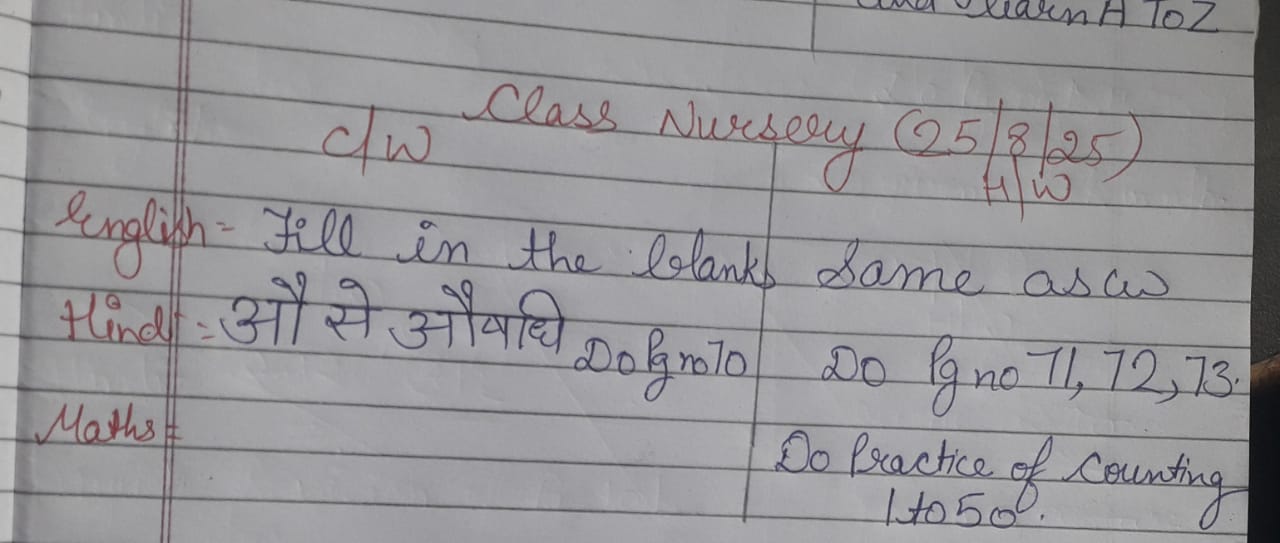 and learn A To Z
Class Nursery (25/8/25)
C/W H/W
English = Fill in the blanks Same as cw
Hindi = औ से औषधि Do Pg no 70 Do Pg no 71, 72, 73.
Maths =
Do Practice of Counting
1 to 50.